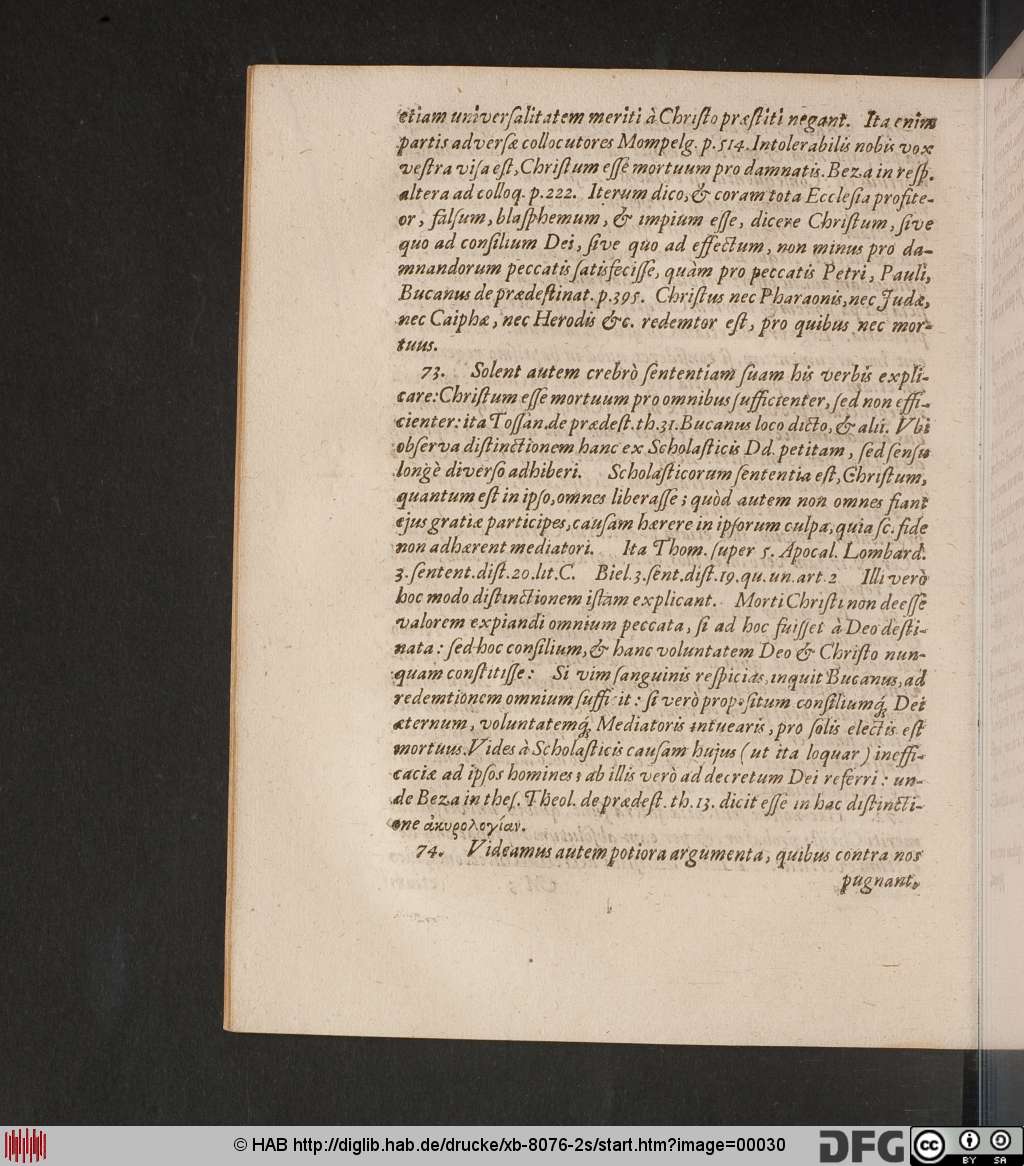 etiam universalitatem meriti à Christo præstiti negant. Ita enim
partis adversæ collocutores Mompelg. p. 514. Intolerabilis nobis vox
vestra visa est, Christum esse mortuum pro damnatis. Beza in resp.
altera ad colloq. p. 222. Iterum dico, & coram tota Ecclesia profite-
or, falsum, blasphemum, & impium esse, dicere Christum, sive
quo ad consilium Dei, sive quo ad effectum, non minus pro da-
mnandorum peccatis satisfecisse, quàm pro peccatis Petri, Pauli,
Bucanus de prædestinat. p. 395. Christus nec Pharaonis, nec Judæ,
nec Caiphæ, nec Herodis &c. redemtor est, pro quibus nec mor-
tuus.
73. Solent autem crebrò sententiam suam his verbis expli-
care: Christum esse mortuum pro omnibus sufficienter, sed non effi-
cienter: ita Tossan. de prædest. th. 31. Bucanus loco dicto, & alii. Ubi
observa distinctionem hanc ex Scholasticis Dd. petitam, sed sensu
longè diverso adhiberi. Scholasticorum sententia est, Christum,
quantum est in ipso, omnes liberasse; quòd autem non omnes fiant
ejus gratiæ participes, causam hærere in ipsorum culpa, quia sc. fide
non adhærent mediatori. Ita Thom. super 5. Apocal. Lombard.
3. sentent. dist. 20. lit. C. Biel. 3. sent. dist. 19. qu. un. art. 2 Illi verò
hoc modo distinctionem istam explicant. Morti Christi non deesse
valorem expiandi omnium peccata, si ad hoc fuisset à Deo desti-
nata: sed hoc consilium, & hanc voluntatem Deo & Christo nun-
quam constitisse: Si vim sanguinis respicias, inquit Bucanus, ad
redemtionem omnium suffi it: si verò propositum consiliumq́; Dei
æternum, voluntatemq́; Mediatoris intuearis, pro solis electis est
mortuus. Vides à Scholasticis causam hujus (ut ita loquar) ineffi-
caciæ ad ipsos homines; ab illis verò ad decretum Dei referri: un-
de Beza in thes. Theol. de prædest. th. 13. dicit esse in hac distincti-
one ἀκυρολογίαν.
74. Videamus autem potiora argumenta, quibus contra nos
pugnant.
© HAB http://diglib.hab.de/drucke/xb-8076-2s/start.htm?image=00030
DFG
cc
BY SA